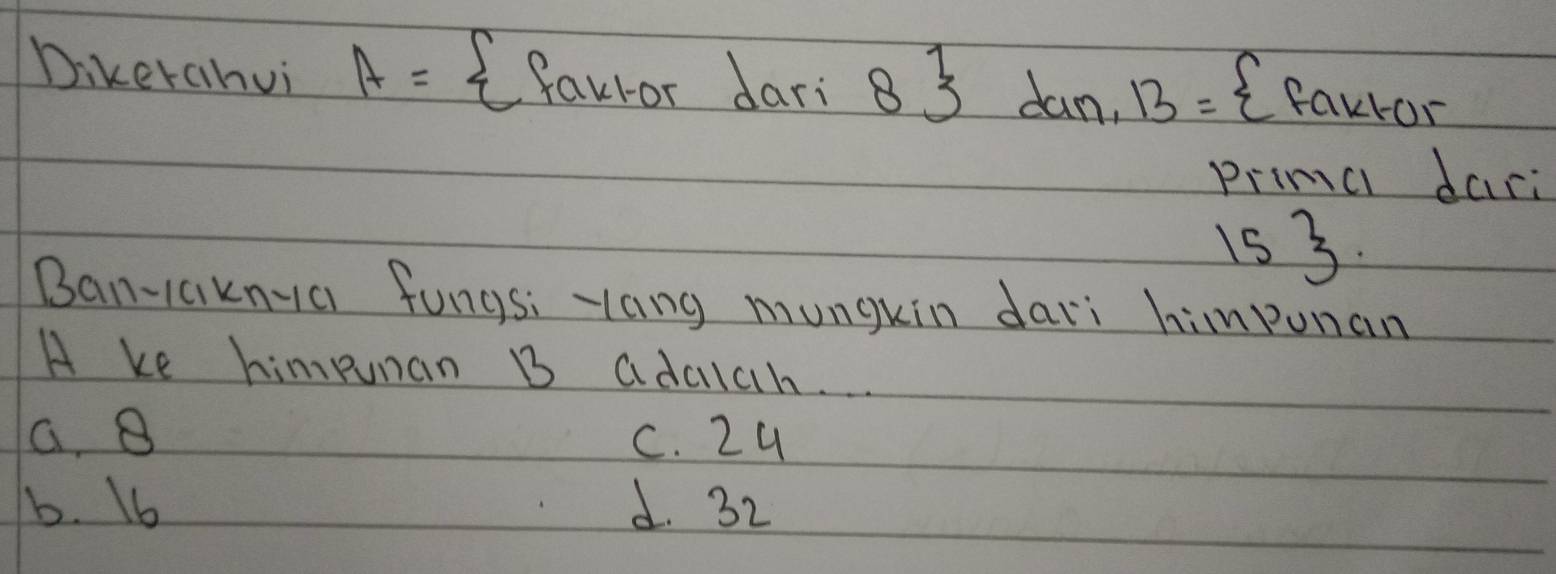 Diketahui A = { faktor dari 8 } dan, B = { faktor
prima dari
15 }.
Banyaknya fungsi yang mungkin dari himpunan
A ke himpunan B adalah...
a. 8 c. 24
b. 16 d. 32